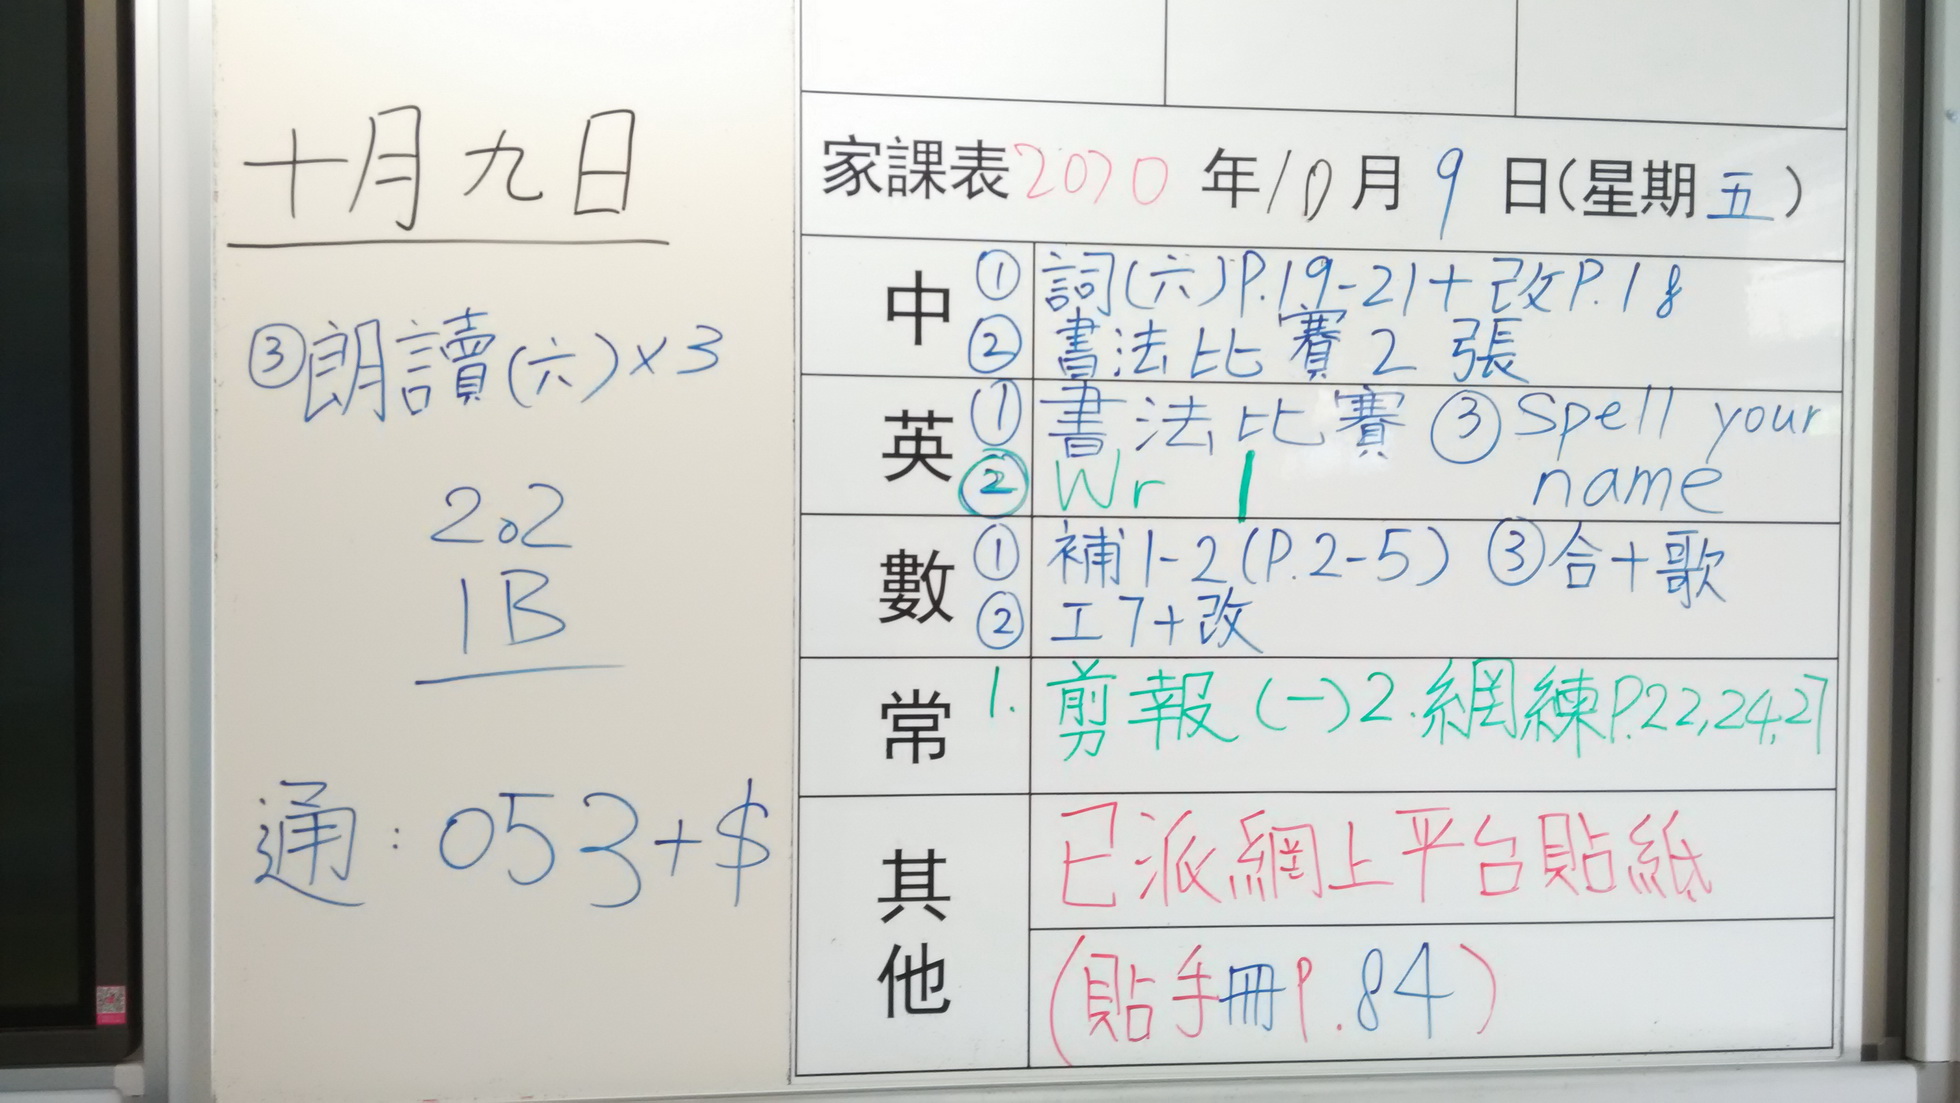 十月九日
③朗讀(六)×3
2.2
1B
通:053+$
家課表2020年10月9日(星期五)
中 ①詞(六)P.19-21+改P.18
②書法比賽2張
英 ①書法比賽 ③Spell your
②Wr 1 name
數 ①補1-2(P.2-5) ③合+歌
②工7+改
常 1.剪報(一)2.網練P.22,24,27
其他 已派網上平台貼紙
(貼手冊P.84)